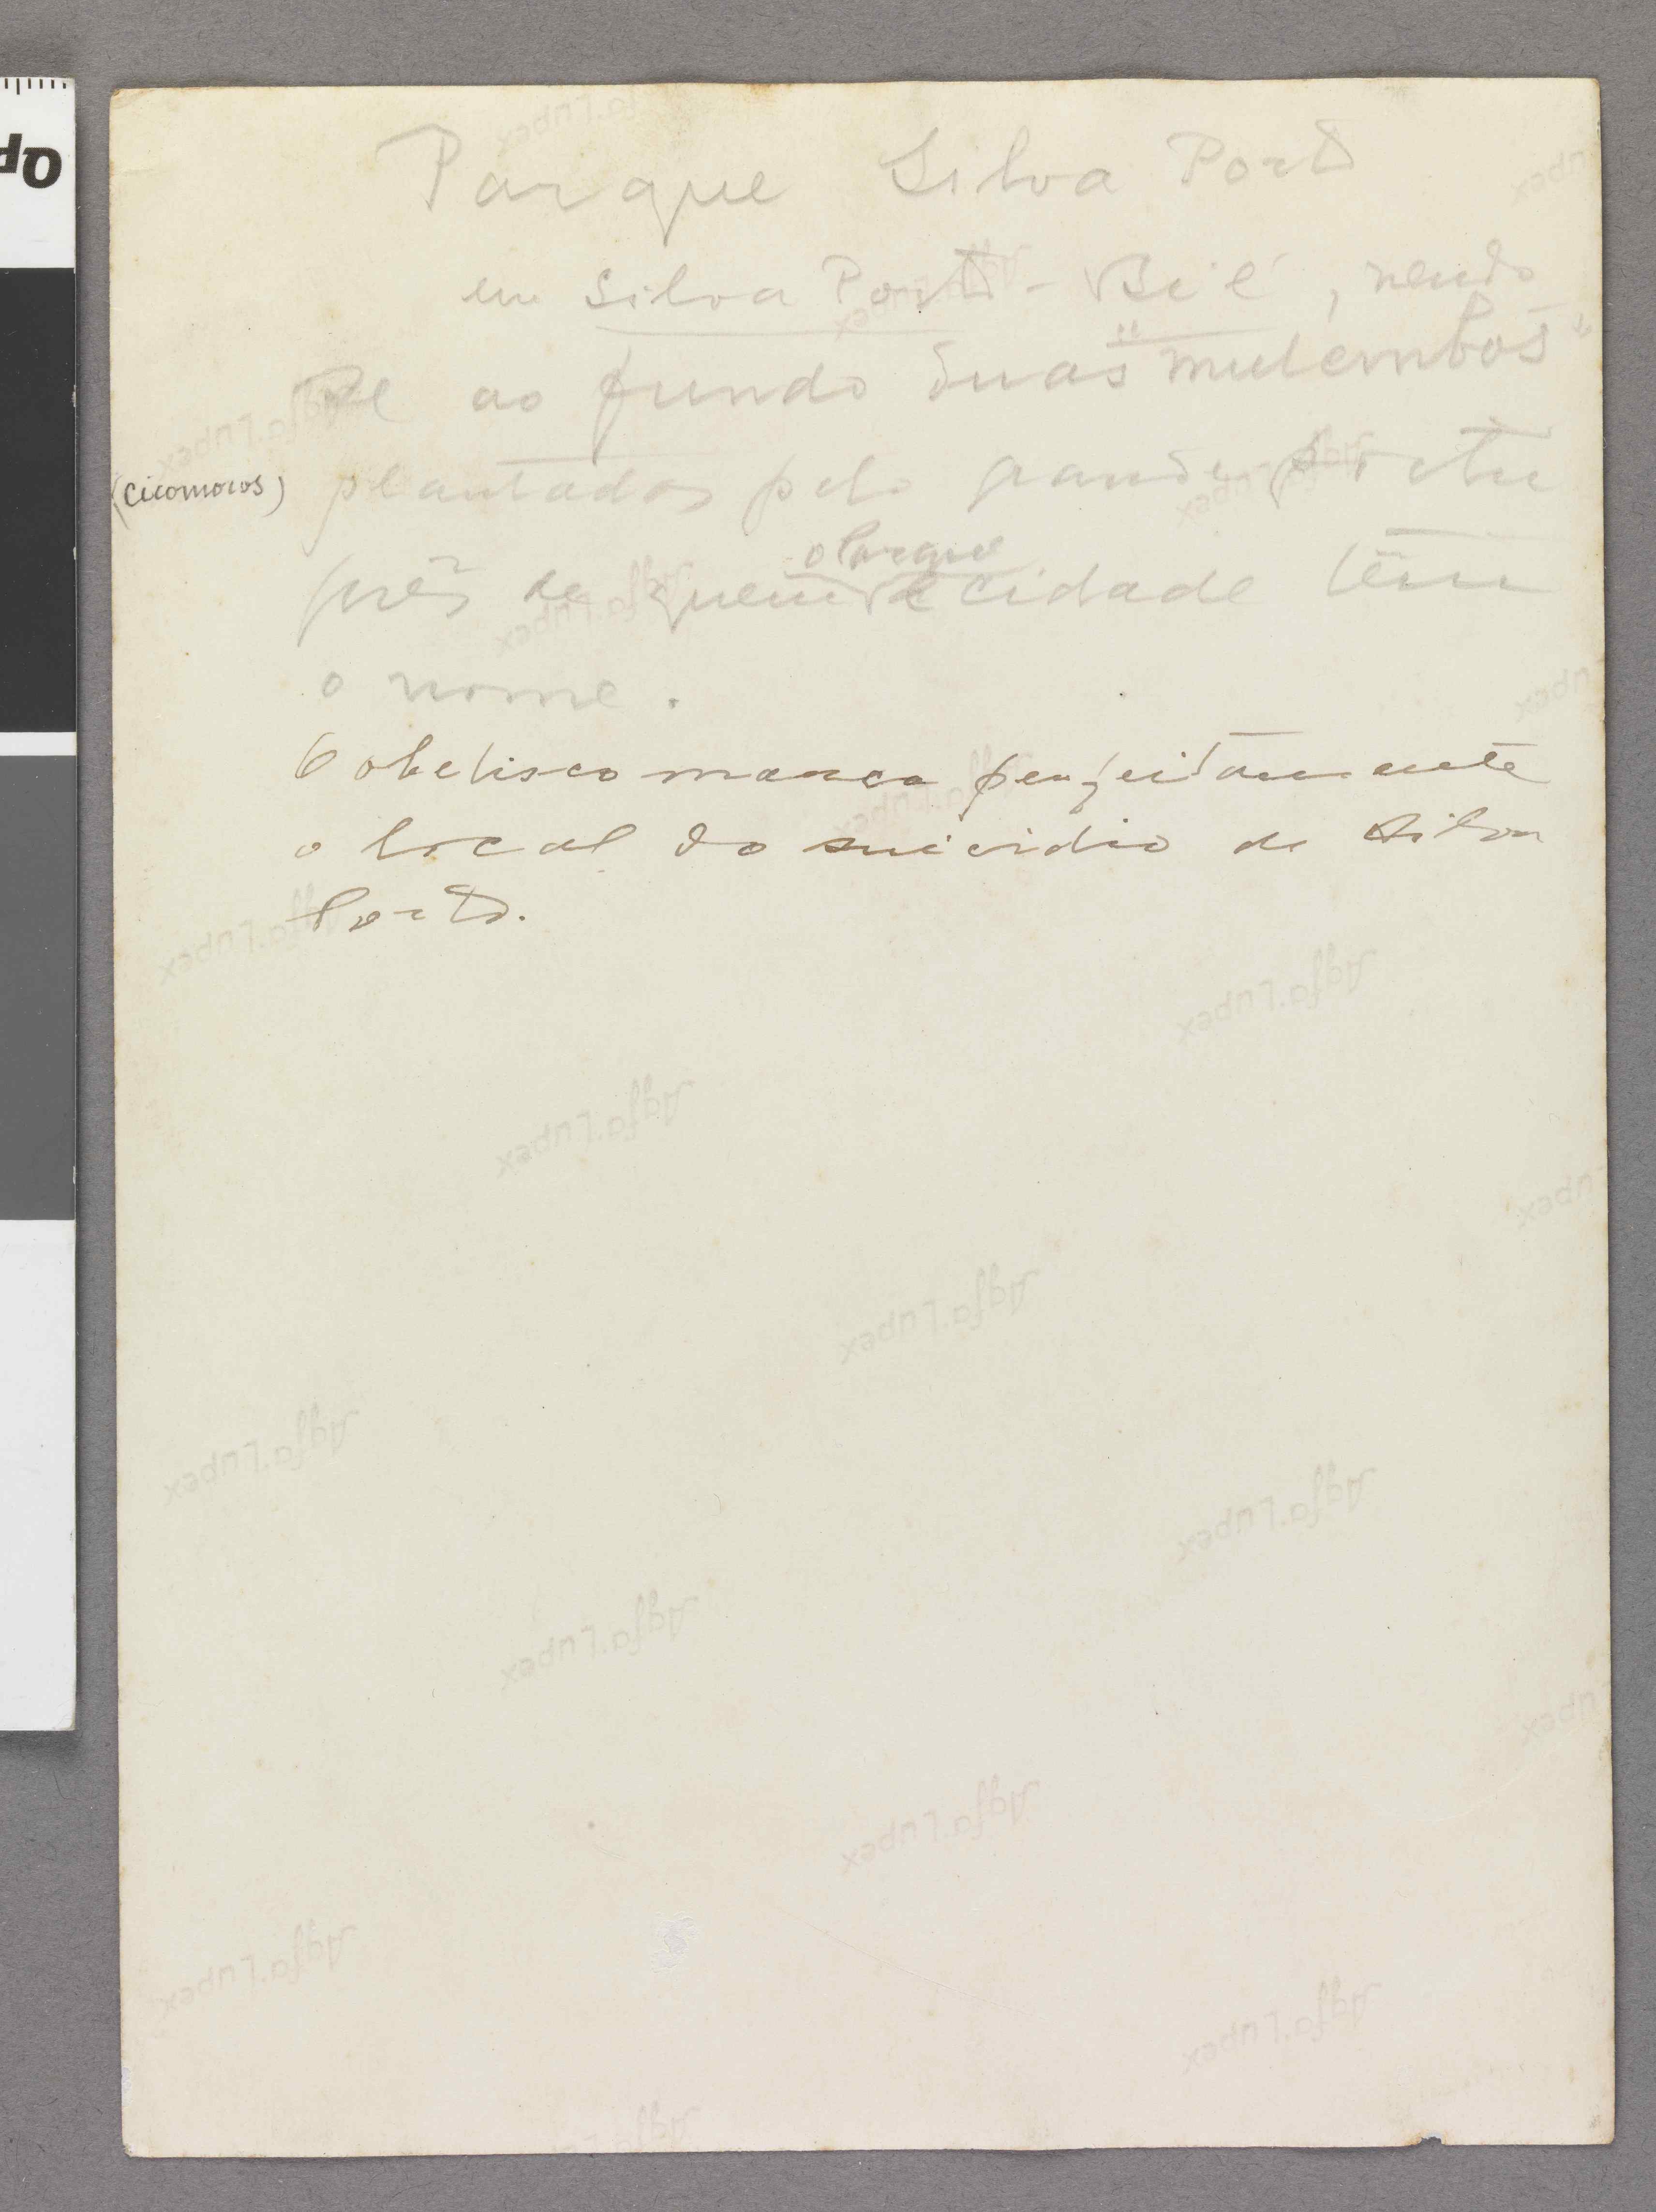 Parque Silva Porto
em Silva Porto - Bié, vendo
se ao fundo duas "mulembas"
(cicomoros) plantadas pelo grande portu
guês de quem o Parque e a cidade têm
o nome.
O obelisco marca perfeitamente
o local do suicidio de Silva
Porto.
Agfa-Lupex